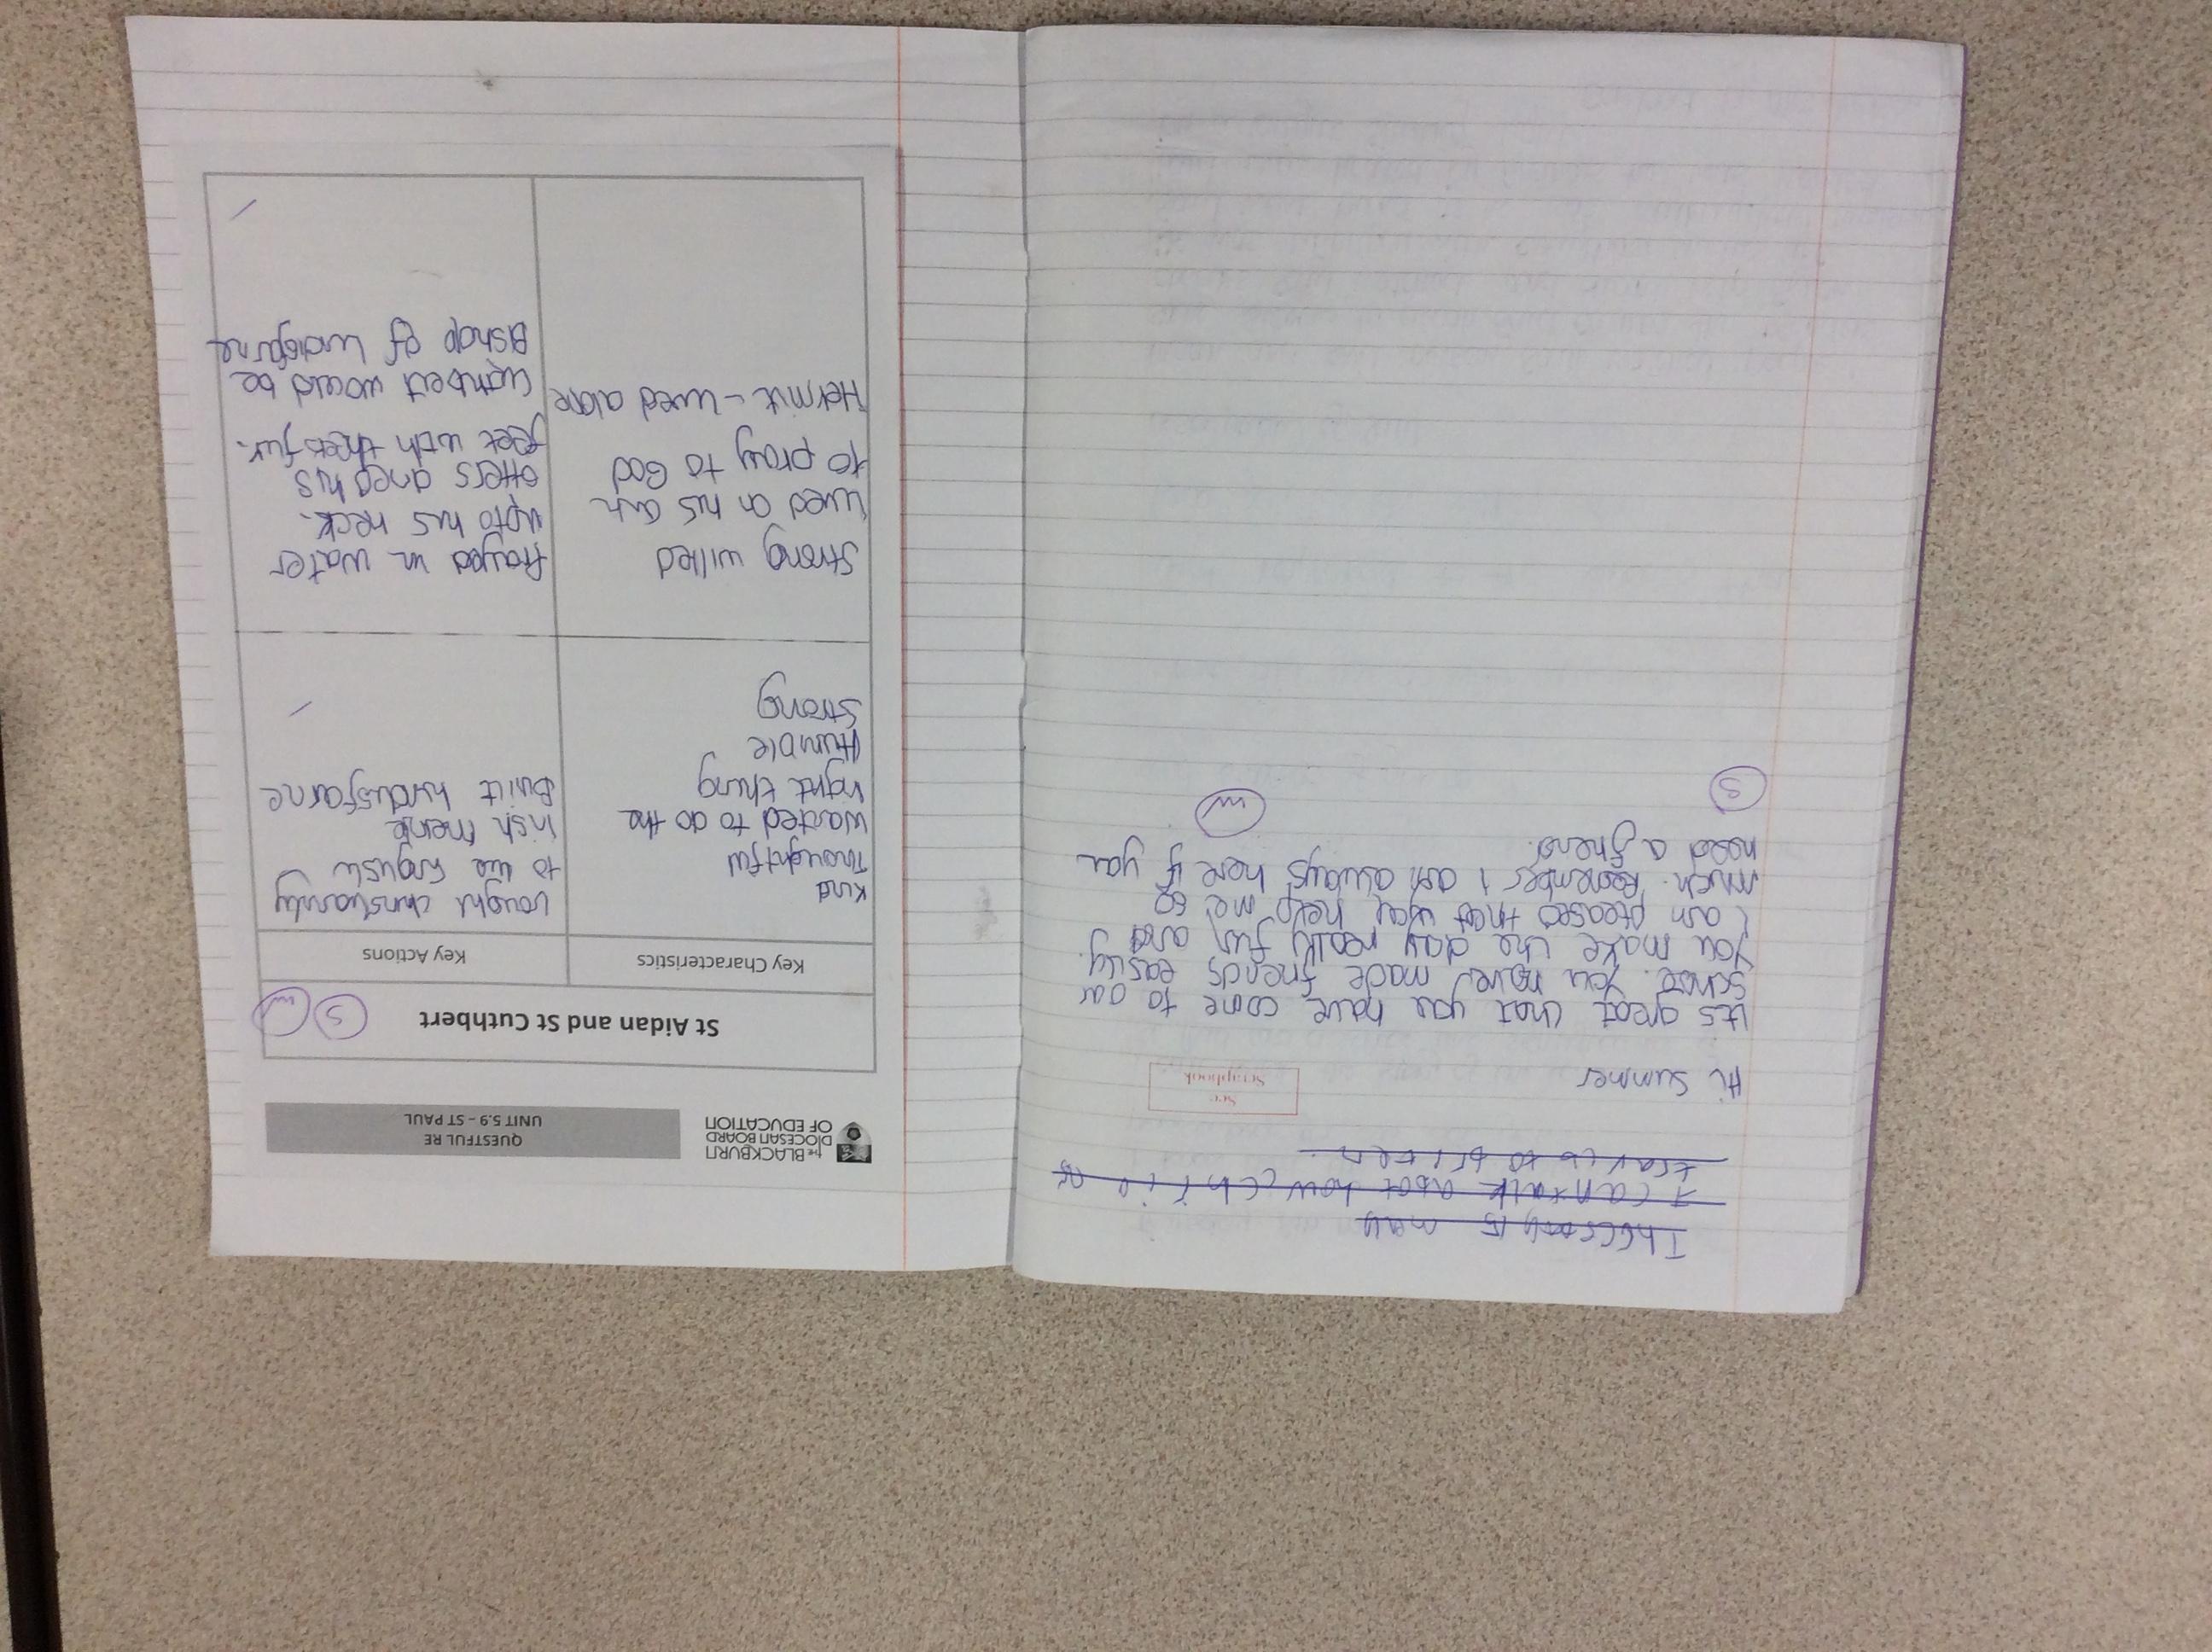 I can talk abot how
to
Hi Summer
See
Scrapbook
its great that you have come to our
school. You have made friends easily.
You make the day really fun and
I am pleased that you help me so
much. Remember I am always here if you
need a friend.
S
W
THE BLACKBURN
DIOCESAN BOARD
OF EDUCATION
QUESTFUL RE
UNIT 5.9 – ST PAUL
St Aidan and St Cuthbert
S
W
Key Characteristics
Key Actions
Kind
Thoughtful
Wanted to do the
right thing
Humble
Strong
taught christianity
to the English
Irish
Built lindisfarne
Strong willed
Lived on his own
to pray to God
Hermit - lived alone
Prayed in water
upto his neck.
otters dried his
feet with fur.
Cuthbert would be
Bishop of